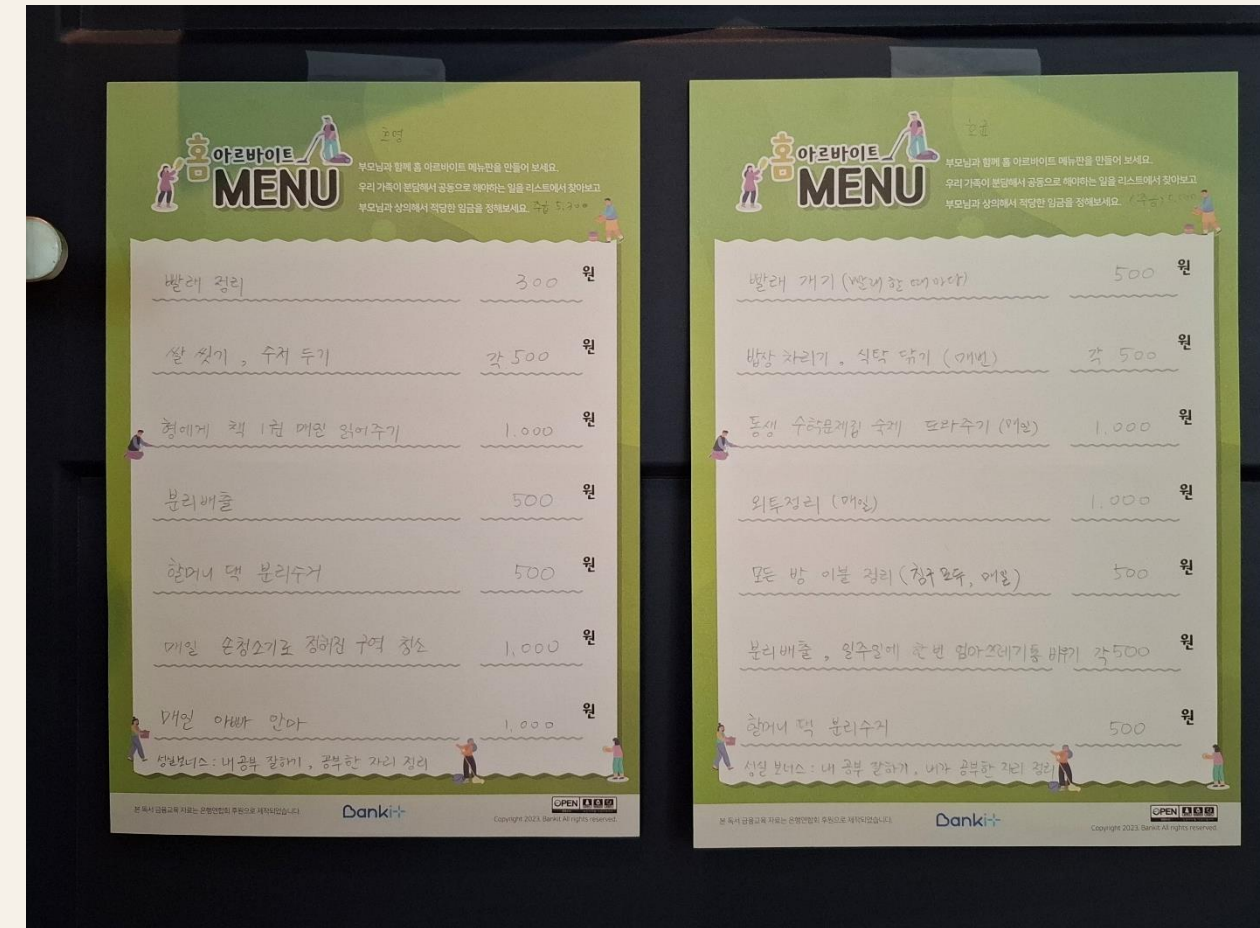 호영
홈 아르바이트
MENU
부모님과 함께 홈 아르바이트 메뉴판을 만들어 보세요.
우리 가족이 분담해서 공동으로 해야하는 일을 리스트에서 찾아보고
부모님과 상의해서 적당한 임금을 정해보세요. 주급 5,300
빨래 정리 300 원
쌀 씻기, 수저 두기 각 500 원
형에게 책 1권 매일 읽어주기 1.000 원
분리배출 500 원
할머니 댁 분리수거 500 원
매일 손청소기로 정해진 구역 청소 1,000 원
매일 아빠 안마 1,000 원
성실보너스 : 내 공부 잘하기, 공부한 자리 정리
본 독서 금융교육 자료는 은행연합회 후원으로 제작되었습니다.
Banki+
OPEN
Copyright 2023. Bankit All rights reserved.
홈 아르바이트
MENU
부모님과 함께 홈 아르바이트 메뉴판을 만들어 보세요.
우리 가족이 분담해서 공동으로 해야하는 일을 리스트에서 찾아보고
부모님과 상의해서 적당한 임금을 정해보세요. (주급)
빨래 개기 (빨래 한 때마다) 500 원
밥상 차리기, 식탁 닦기 (매번) 각 500 원
동생 수학문제집 숙제 도와주기 (매일) 1.000 원
외투정리 (매일) 1.000 원
모든 방 이불 정리 (침구 모두, 매일) 500 원
분리배출, 일주일에 한번 엄마쓰레기통 비우기 각 500 원
할머니 댁 분리수거 500 원
성실 보너스 : 내 공부 잘하기, 내가 공부한 자리 정리
본 독서 금융교육 자료는 은행연합회 후원으로 제작되었습니다.
Banki+
OPEN
Copyright 2023. Bankit All rights reserved.